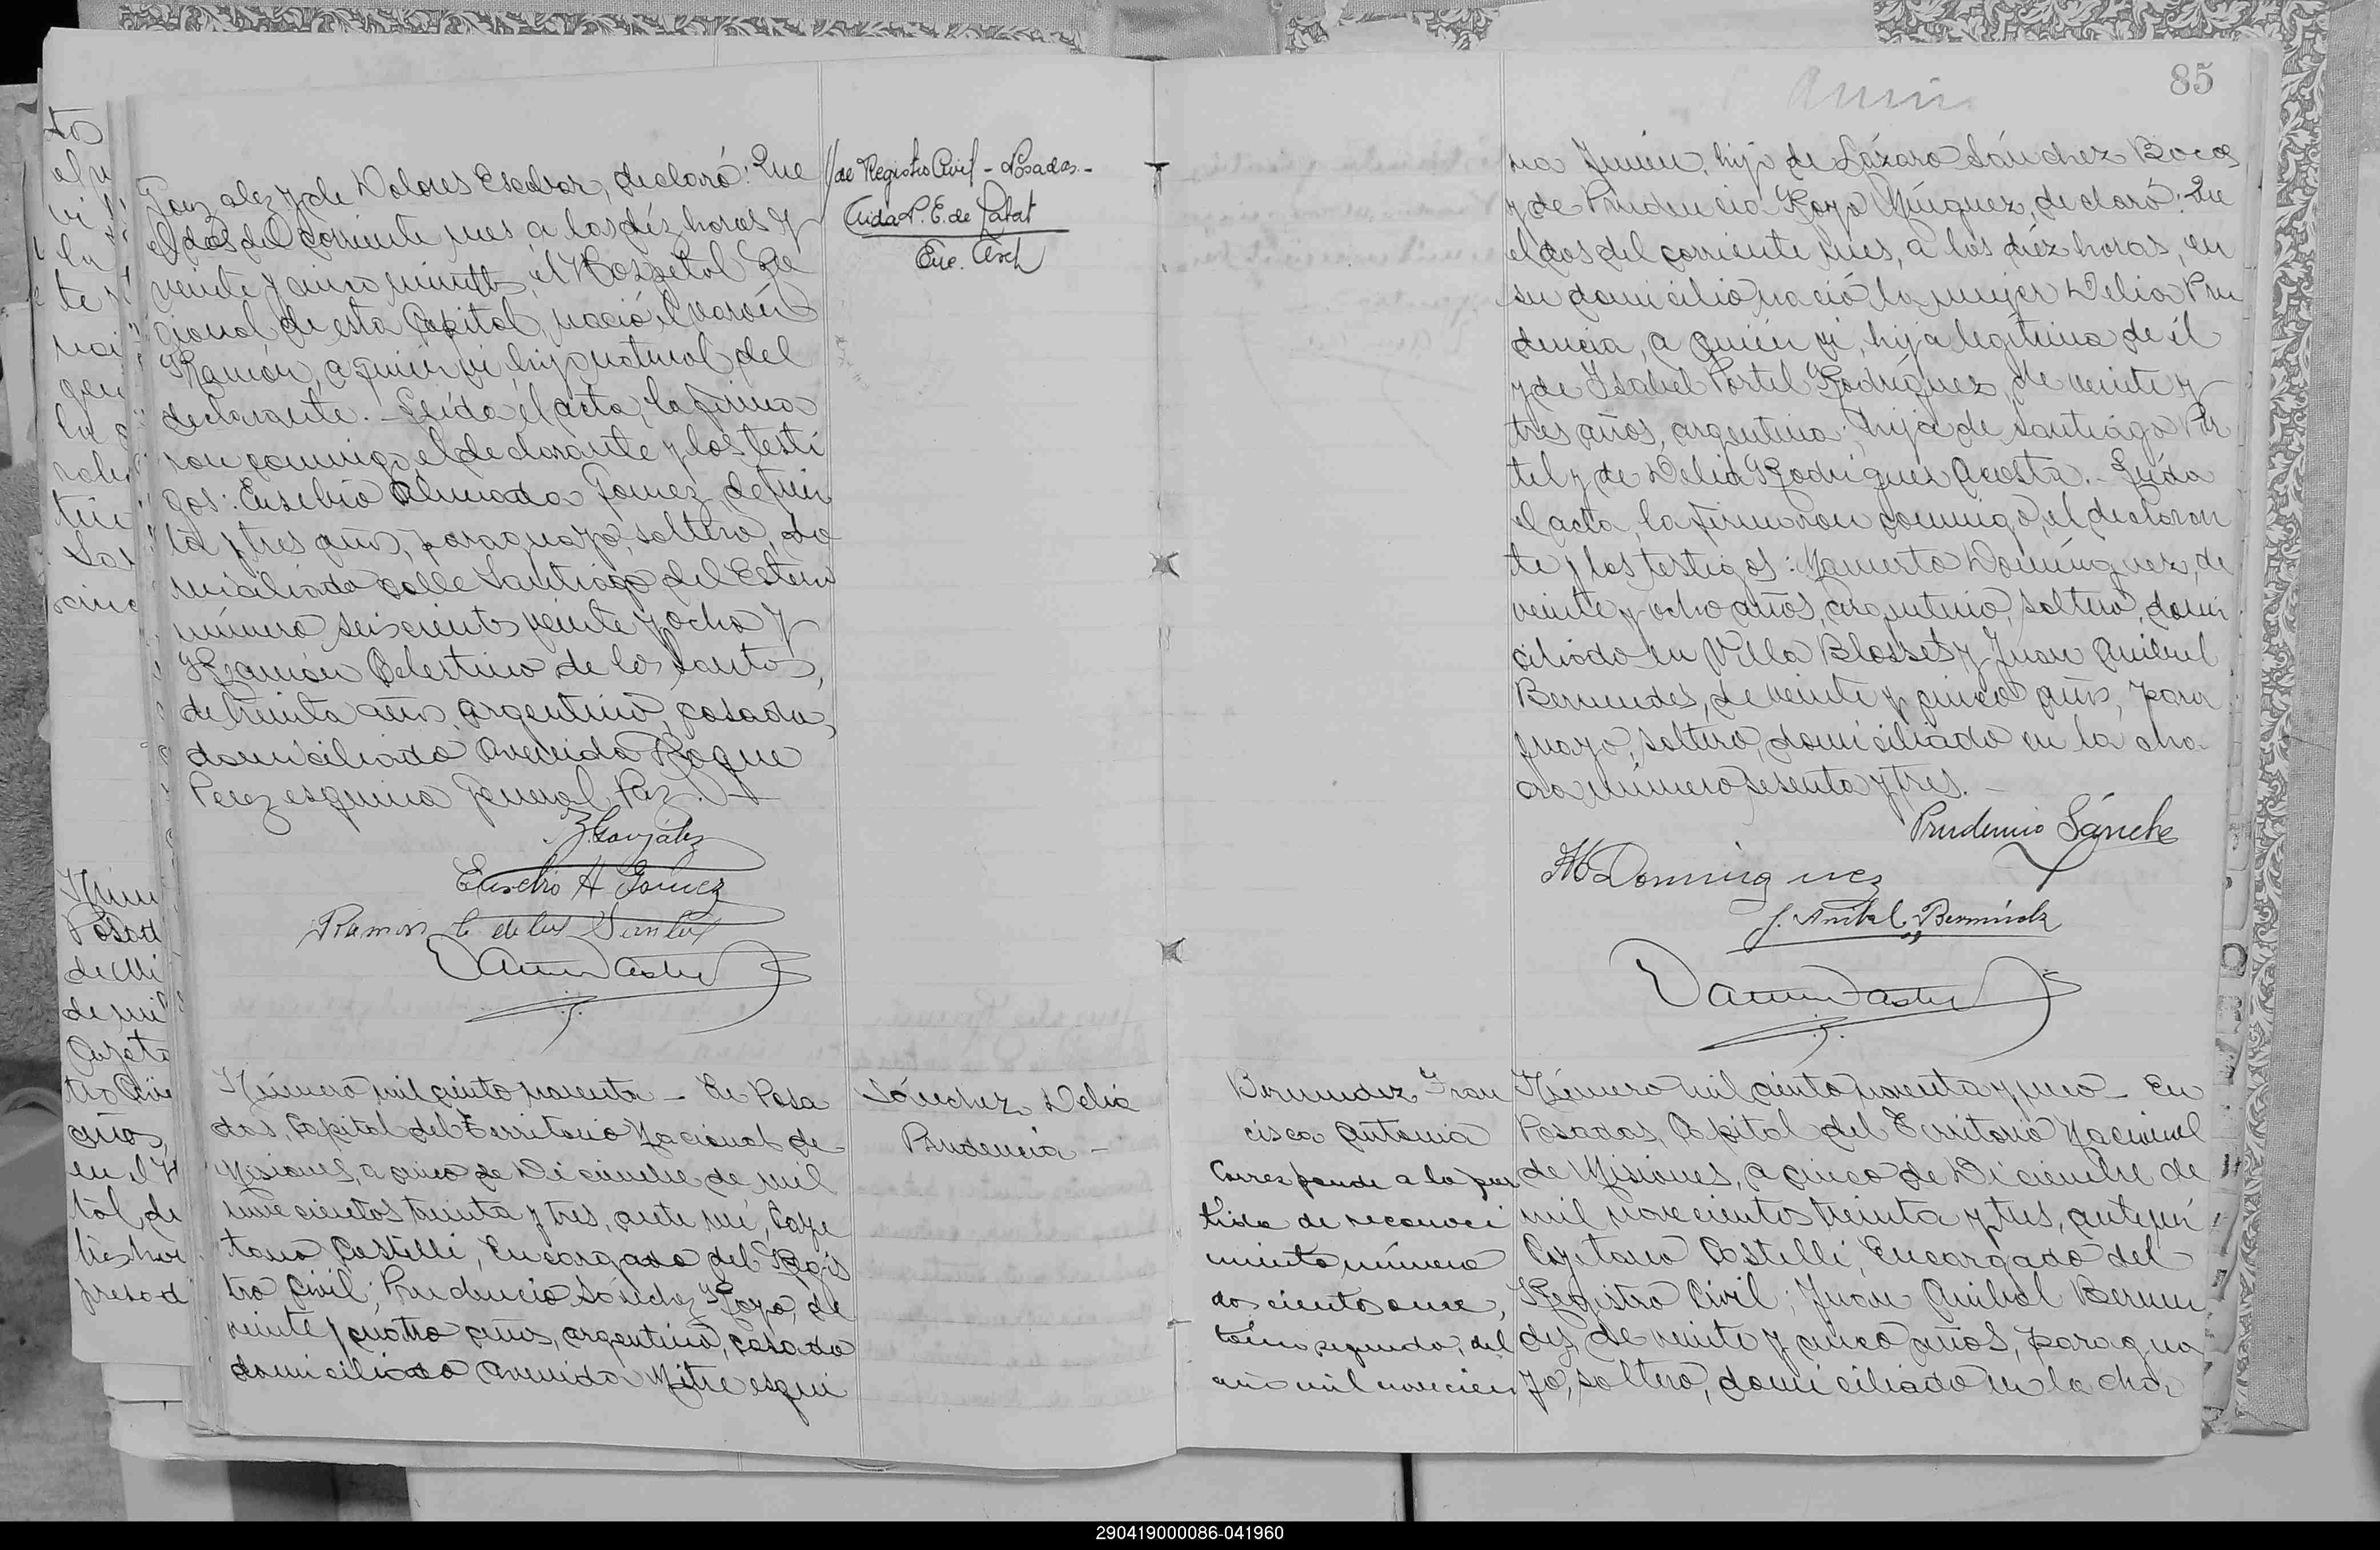 Gonzalez y de Dolores Escobar, declaró: Que
el dos del corriente mes a las diéz horas y
veinte y cinco minutos, el Hospital Re
gional de esta Capital, nació el varón
Ramón, a quien vi, hijo natural del
declarante. - Leída el acta, la firma
ron conmigo, el declarante y los testi
gos: Eusebio Almada Gomez, de trein
ta y tres años, paraguayo, soltero, do
miciliado calle Santiago del Estero
número seiscientos veinte y ocho y
Ramón Celestino de los Santos,
de treinta años, argentino, casado,
domiciliado Avenida Roque
Perez esquina General Paz. -
Gonzáles
Eusebio A Gomez
Ramon C de los Santos
Número mil ciento noventa - En Posa
das, Capital del Territorio Nacional de
Misiones, a cinco de Diciembre de mil
nove cientos treinta y tres, ante mí, Caye
tano Castelli, Encargado del Regis
tro Civil; Prudencio Sánchez Royo, de
veinte y cuatro años, argentino, casado
domiciliado Avenida Mitre esqui
de Registro Civil - Posadas -
Enc. Arch
Sánchez Delia
Prudencia -
85
na Junin, hijo de Lázaro Sánchez Bocos
y de Prudencia Royo Mínguez, declaró: Que
el dos del corriente mes, a las diéz horas, en
su domicilio nació la mujer Delia Pru
dencia, a quién vi, hija legítima de él
y de Isabel Portel Rodríguez, de veinte y
tres años, argentina, hija de Santiago Por
tel y de Delia Rodríguez Acosta. - Leída
el acta, la firmaron conmigo, el declaran
te y los testigos: Mamerto Domínguez, de
veinte y ocho años, argentino, soltero, domi
ciliado en Villa Blosset y Juan Anibal
Bermudes, de veinte y cinco años, para
guayo, soltero, domiciliado en la cha
cra número sesenta y tres. -
Prudencio Sánchez
M Dominguez
J. Anibal Bermúdez
Bermudez Fran
cisca Antonia
Corresponde a la par
tida de reconoci
miento número
dos cientos once,
tomo segundo, del
año mil novecien
Número mil ciento noventa y uno - En
Posadas, Capital del Territorio Nacional
de Misiones, a cinco de Diciembre de
mil nove cientos treinta y tres, ante mí
Cayetano Castelli, Encargado del
Registro Civil; Juan Anibal Bermu
dez, de veinte y cinco años, paragua
yo, soltero, domiciliado en la cha
290419000086-041960